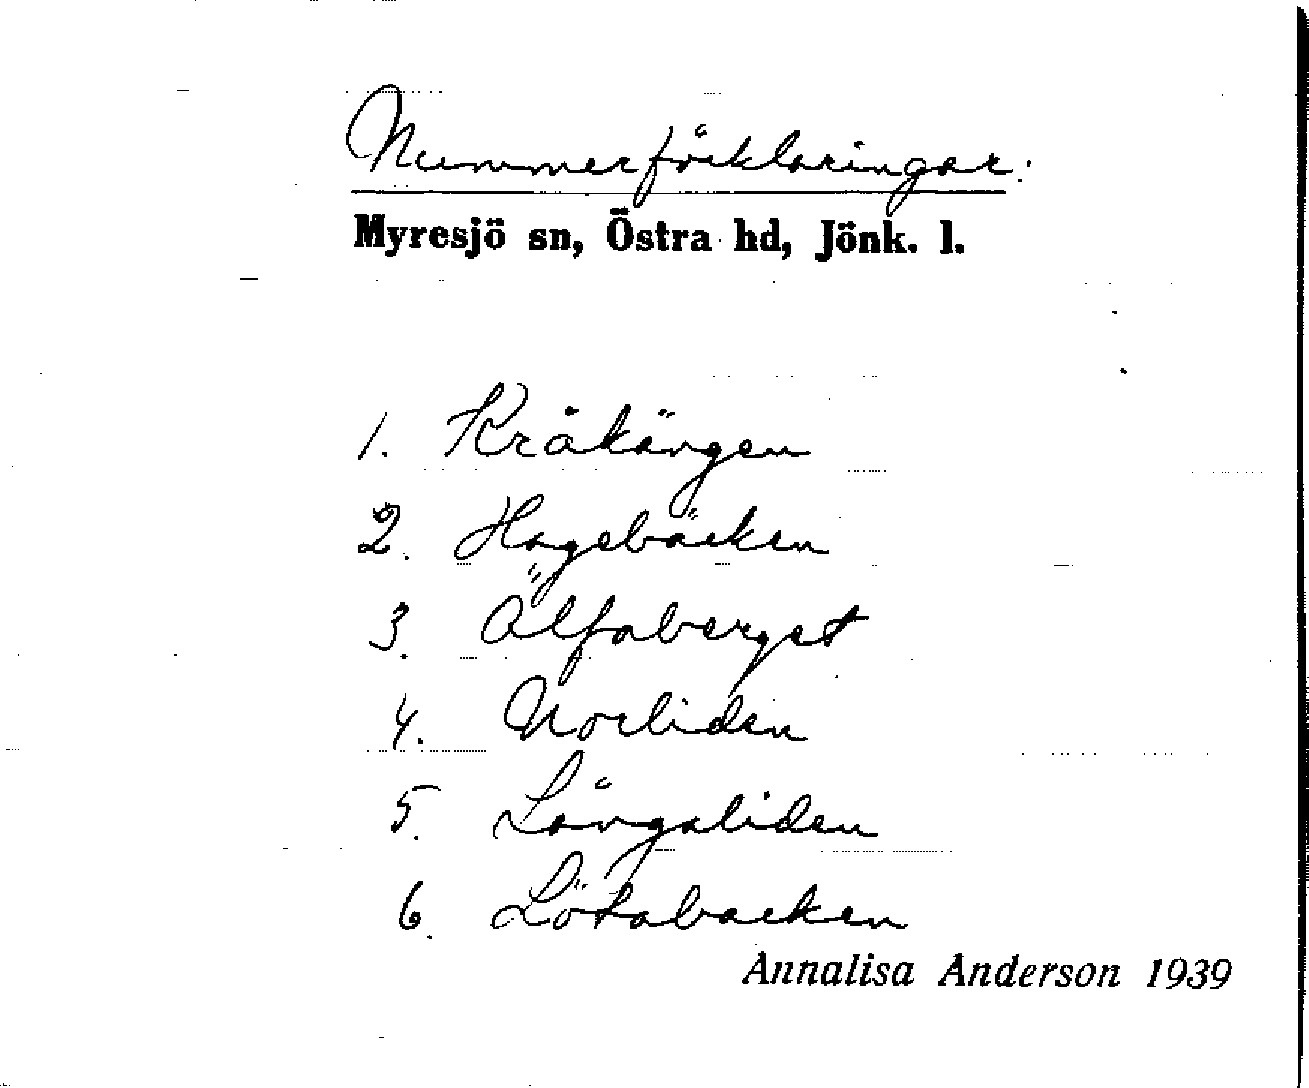 Nummerförklaringar.
Myresjö sn, Östra hd, Jönk. l.
1. Kråkängen
2. Hagebäcken
3. Älfaberget
4. Norliden
5. Långaliden
6. Lötabacken
Annalisa Anderson 1939